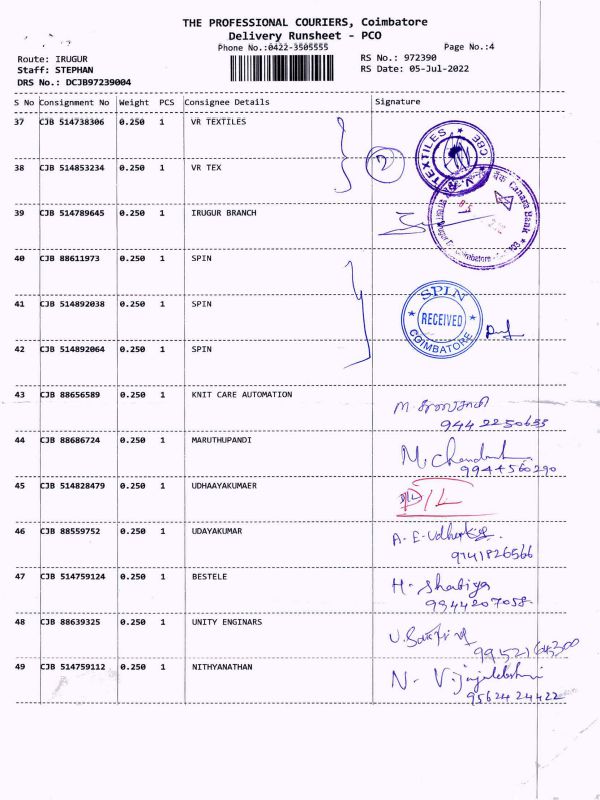 THE PROFESSIONAL COURIERS, Coimbatore
Delivery Runsheet - PCO
Phone No.:0422-3505555 Page No.:4
Route: IRUGUR RS No.: 972390
Staff: STEPHAN RS Date: 05-Jul-2022
DRS No.: DCJB97239004
S No Consignment No Weight PCS Consignee Details Signature
37 CJB 514738306 0.250 1 VR TEXTILES
V.R. TEXTILES * CBE *
38 CJB 514853234 0.250 1 VR TEX
2
39 CJB 514789645 0.250 1 IRUGUR BRANCH
Canara Bank
40 CJB 88611973 0.250 1 SPIN
41 CJB 514892038 0.250 1 SPIN
SPIN
RECEIVED
COIMBATORE
42 CJB 514892064 0.250 1 SPIN
43 CJB 88656589 0.250 1 KNIT CARE AUTOMATION
9442250633
44 CJB 88686724 0.250 1 MARUTHUPANDI
9944560290
45 CJB 514828479 0.250 1 UDHAAYAKUMAER
D/L
46 CJB 88559752 0.250 1 UDAYAKUMAR
9741826566
47 CJB 514759124 0.250 1 BESTELE
H. Shabiya
9944207058
48 CJB 88639325 0.250 1 UNITY ENGINARS
49 CJB 514759112 0.250 1 NITHYANATHAN
9562424422